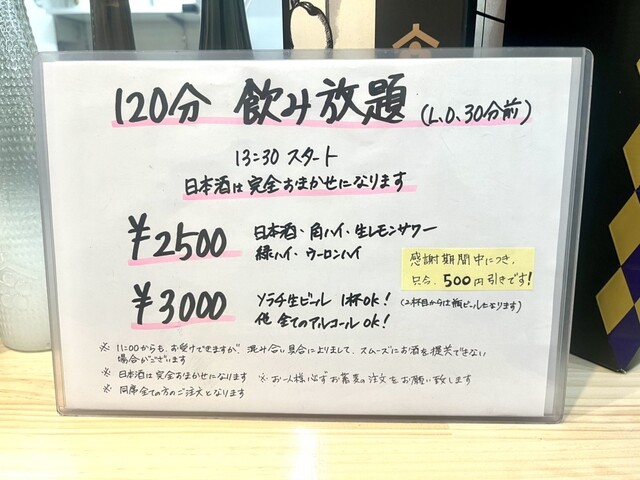 120分 飲み放題 (L.O.30分前)
13:30 スタート
日本酒は完全おまかせになります
¥2500 日本酒・角ハイ・生レモンサワー
緑ハイ・ウーロンハイ
感謝期間中につき、
只今、500円引きです!
¥3000 ソラチ生ビール 1杯OK!
(2杯目からは瓶ビールになります)
他 全てのアルコール OK!
※ 11:00からも、お受けできますが、混み合い具合によりまして、スムーズにお酒を提供できない
場合がございます
※ 日本酒は完全おまかせになります ※ お一人様必ずお蕎麦の注文をお願い致します
※ 同席全ての方のご注文となります